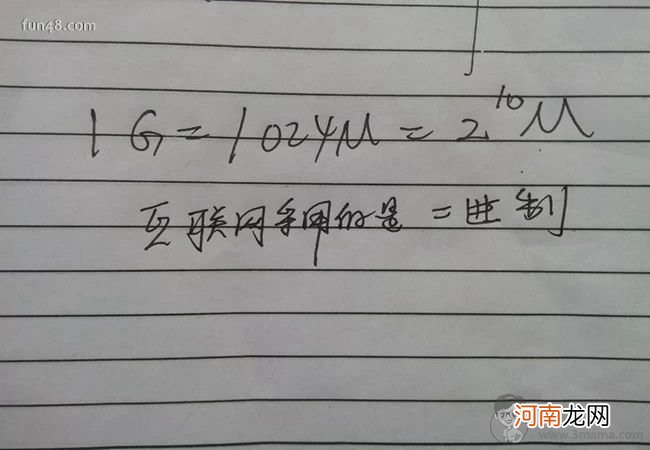 fun48.com
1G=1024M=2¹⁰M
互联网采用的是二进制
河南龙网
www.5mama.com